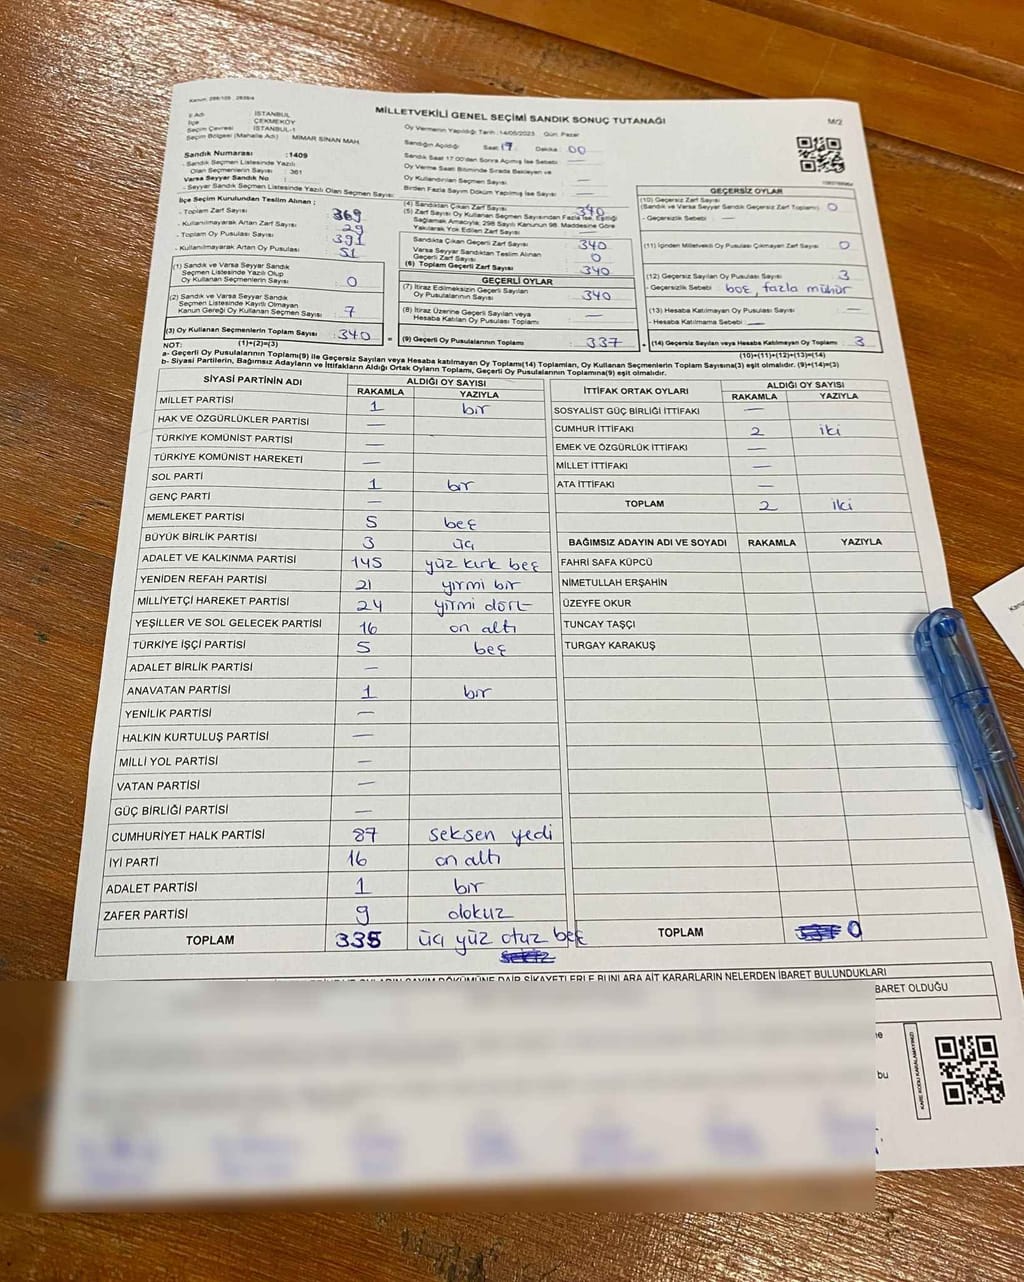 MİLLETVEKİLİ GENEL SEÇİMİ SANDIK SONUÇ TUTANAĞI
M/2
İli Adı İSTANBUL
İlçe ÇEKMEKÖY
Seçim Çevresi İSTANBUL-1
Seçim Bölgesi (Mahalle Adı) MİMAR SİNAN MAH.
Sandık Numarası :1409
- Sandık Seçmen Listesinde Yazılı
Olan Seçmenlerin Sayısı : 361
Varsa Seyyar Sandık No :
- Seyyar Sandık Seçmen Listesinde Yazılı Olan Seçmen Sayısı:
İlçe Seçim Kurulundan Teslim Alınan ;
- Toplam Zarf Sayısı : 369
- Kullanılmayarak Artan Zarf Sayısı : 29
- Toplam Oy Pusulası Sayısı : 391
- Kullanılmayarak Artan Oy Pusulası : 51
(1) Sandık ve Varsa Seyyar Sandık
Seçmen Listesinde Yazılı Olup
Oy Kullanan Seçmenlerin Sayısı : 0
(2) Sandık ve Varsa Seyyar Sandık
Seçmen Listesinde Kayıtlı Olmayan
Kanun Gereği Oy Kullanan Seçmen Sayısı : 7
(3) Oy Kullanan Seçmenlerin Toplam Sayısı : 340
Oy Vermenin Yapıldığı Tarih :14/05/2023 Gün: Pazar
Sandığın Açıldığı Saat 17. Dakika : 00
Sandık Saat 17:00'den Sonra Açılmış İse Sebebi : —
Oy Verme Saati Bitiminde Sırada Bekleyen ve
Oy Kullandırılan Seçmen Sayısı : —
Birden Fazla Sayım Döküm Yapılmış İse Sayısı : —
(4) Sandıktan Çıkan Zarf Sayısı : 340
(5) Zarf Sayısı Oy Kullanan Seçmen Sayısından Fazla İse, Eşitliği
Sağlamak Amacıyla; 298 Sayılı Kanunun 98. Maddesine Göre
Yakılarak Yok Edilen Zarf Sayısı : —
Sandıkta Çıkan Geçerli Zarf Sayısı : 340
Varsa Seyyar Sandıktan Teslim Alınan
Geçerli Zarf Sayısı : 0
(6) Toplam Geçerli Zarf Sayısı : 340
GEÇERLİ OYLAR
(7) İtiraz Edilmeksizin Geçerli Sayılan
Oy Pusulalarının Sayısı : 340
(8) İtiraz Üzerine Geçerli Sayılan veya
Hesaba Katılan Oy Pusulası Toplamı : —
= (9) Geçerli Oy Pusulalarının Toplamı : 337
GEÇERSİZ OYLAR
(10) Geçersiz Zarf Sayısı
(Sandık ve Varsa Seyyar Sandık Geçersiz Zarf Toplamı) : 0
- Geçersizlik Sebebi : —
(11) İçinden Milletvekili Oy Pusulası Çıkmayan Zarf Sayısı : 0
(12) Geçersiz Sayılan Oy Pusulası Sayısı : 3
- Geçersizlik Sebebi : boş, fazla mühür
(13) Hesaba Katılmayan Oy Pusulası Sayısı : —
- Hesaba Katılmama Sebebi : —
+ (14) Geçersiz Sayılan veya Hesaba Katılmayan Oy Toplamı : 3
NOT: (1)+(2)=(3) (10)+(11)+(12)+(13)=(14)
a- Geçerli Oy Pusulalarının Toplamı(9) ile Geçersiz Sayılan veya Hesaba katılmayan Oy Toplamı(14) Toplamları, Oy Kullanan Seçmenlerin Toplam Sayısına(3) eşit olmalıdır. (9)+(14)=(3)
b- Siyasi Partilerin, Bağımsız Adayların ve İttifakların Aldığı Ortak Oyların Toplamı, Geçerli Oy Pusulalarının Toplamına(9) eşit olmalıdır.
SİYASİ PARTİNİN ADI ALDIĞI OY SAYISI
RAKAMLA YAZIYLA
MİLLET PARTİSİ 1 bir
HAK VE ÖZGÜRLÜKLER PARTİSİ —
TÜRKİYE KOMÜNİST PARTİSİ —
TÜRKİYE KOMÜNİST HAREKETİ —
SOL PARTİ 1 bir
GENÇ PARTİ —
MEMLEKET PARTİSİ 5 beş
BÜYÜK BİRLİK PARTİSİ 3 üç
ADALET VE KALKINMA PARTİSİ 145 yüz kırk beş
YENİDEN REFAH PARTİSİ 21 yirmi bir
MİLLİYETÇİ HAREKET PARTİSİ 24 yirmi dört
YEŞİLLER VE SOL GELECEK PARTİSİ 16 on altı
TÜRKİYE İŞÇİ PARTİSİ 5 beş
ADALET BİRLİK PARTİSİ —
ANAVATAN PARTİSİ 1 bir
YENİLİK PARTİSİ —
HALKIN KURTULUŞ PARTİSİ —
MİLLİ YOL PARTİSİ —
VATAN PARTİSİ —
GÜÇ BİRLİĞİ PARTİSİ —
CUMHURİYET HALK PARTİSİ 87 seksen yedi
İYİ PARTİ 16 on altı
ADALET PARTİSİ 1 bir
ZAFER PARTİSİ 9 dokuz
TOPLAM 335 üç yüz otuz beş
İTTİFAK ORTAK OYLARI ALDIĞI OY SAYISI
RAKAMLA YAZIYLA
SOSYALİST GÜÇ BİRLİĞİ İTTİFAKI —
CUMHUR İTTİFAKI 2 iki
EMEK VE ÖZGÜRLÜK İTTİFAKI —
MİLLET İTTİFAKI —
ATA İTTİFAKI —
TOPLAM 2 iki
BAĞIMSIZ ADAYIN ADI VE SOYADI RAKAMLA YAZIYLA
FAHRİ SAFA KÜPCÜ
NİMETULLAH ERŞAHİN
ÜZEYFE OKUR
TUNCAY TAŞÇI
TURGAY KARAKUŞ
TOPLAM 0
DÖKÜMÜNE DAİR ŞİKAYETLERLE BUNLARA AİT KARARLARIN NELERDEN İBARET BULUNDUKLARI
BARET OLDUĞU
bu
KARE KODU KARALAMAYINIZ!